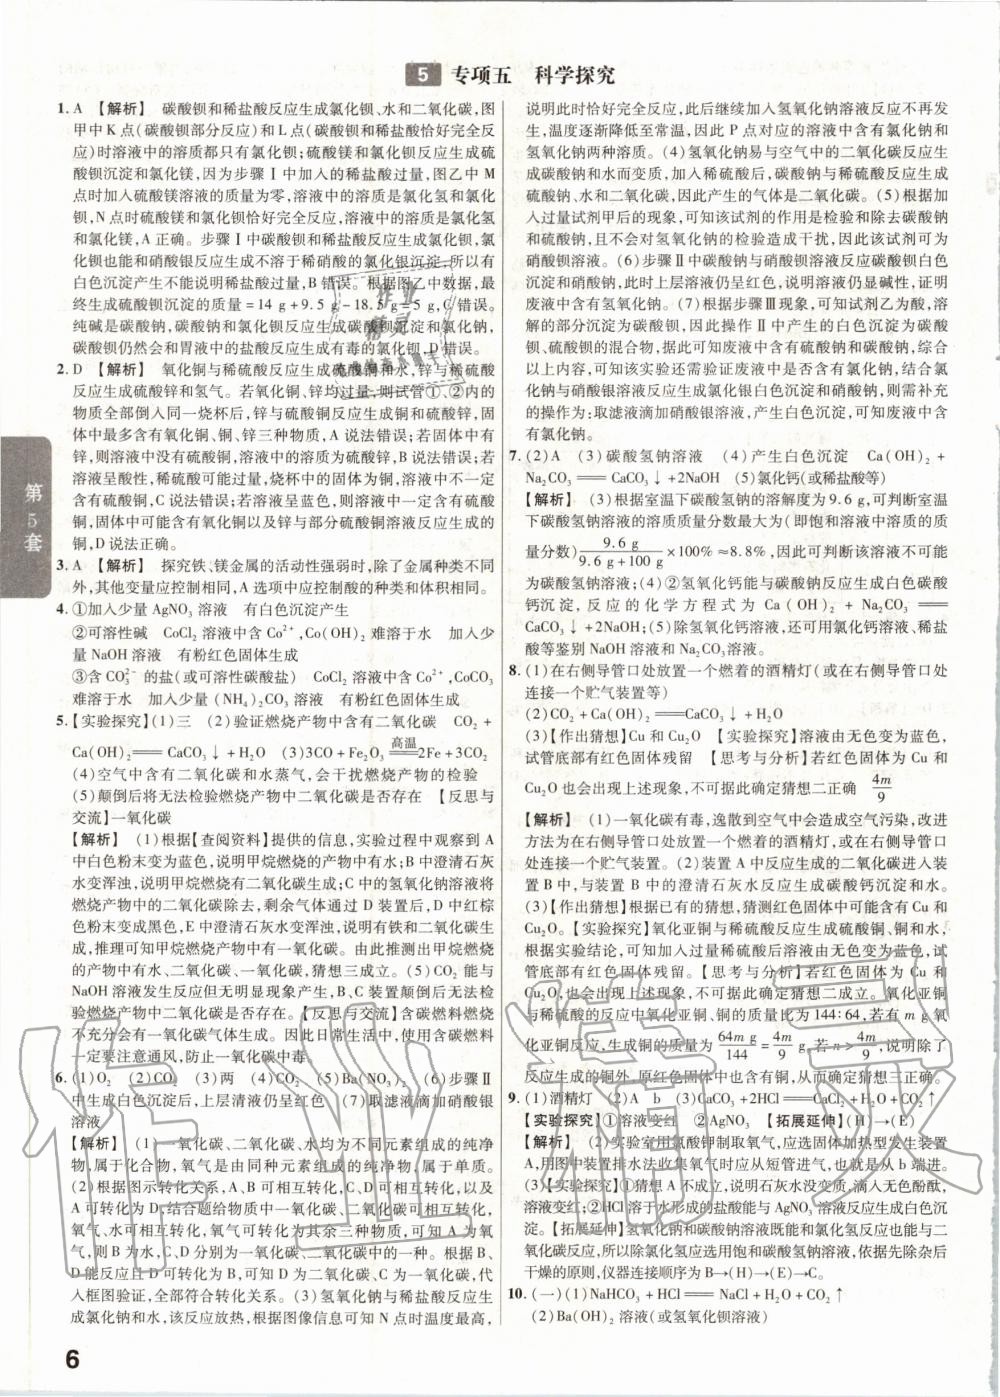 5 专项五 科学探究
1. A 【解析】 碳酸钡和稀盐酸反应生成氯化钡、水和二氧化碳,图
甲中 K 点(碳酸钡部分反应)和 L 点(碳酸钡和稀盐酸恰好完全反
应)时溶液中的溶质都只有氯化钡;硫酸镁和氯化钡反应生成硫
酸钡沉淀和氯化镁,因为步骤 I 中加入的稀盐酸过量,图乙中 M
点时加入硫酸镁溶液的质量为零,溶液中的溶质是氯化氢和氯化
钡,N 点时硫酸镁和氯化钡恰好完全反应,溶液中的溶质是氯化氢
和氯化镁,A 正确。步骤 I 中碳酸钡和稀盐酸反应生成氯化钡,氯
化钡也能和硝酸银反应生成不溶于稀硝酸的氯化银沉淀,所以有
白色沉淀产生不能说明稀盐酸过量,B 错误。根据图乙中数据,最
终生成硫酸钡沉淀的质量=14 g+9.5 g-18.5 g=5 g,C 错误。
纯碱是碳酸钠,碳酸钠和氯化钡反应生成碳酸钡沉淀和氯化钠,
碳酸钡仍然会和胃液中的盐酸反应生成有毒的氯化钡,D 错误。
2. D 【解析】 氧化铜与稀硫酸反应生成硫酸铜和水,锌与稀硫酸
反应生成硫酸锌和氢气。若氧化铜、锌均过量,则试管①、②内的
物质全部倒入同一烧杯后,锌与硫酸铜反应生成铜和硫酸锌,固
体中最多含有氧化铜、铜、锌三种物质,A 说法错误;若固体中有
锌,则溶液中没有硫酸铜,溶液中的溶质是硫酸锌,B 说法错误;若
溶液呈酸性,稀硫酸可能过量,烧杯中的固体为铜,溶液中不一定
含有硫酸铜,C 说法错误;若溶液呈蓝色,则溶液中一定含有硫酸
铜,固体中可能含有氧化铜以及锌与部分硫酸铜溶液反应生成的
铜,D 说法正确。
3. A 【解析】 探究铁、镁金属的活动性强弱时,除了金属种类不同
外,其他变量应控制相同,A 选项中应控制酸的种类和体积相同。
4. ①加入少量 AgNO₃ 溶液 有白色沉淀产生
②可溶性碱 CoCl₂ 溶液中含 Co²⁺,Co(OH)₂ 难溶于水 加入少
量 NaOH 溶液 有粉红色固体生成
③含 CO₃²⁻ 的盐(或可溶性碳酸盐) CoCl₂ 溶液中含 Co²⁺,CoCO₃
难溶于水 加入少量 (NH₄)₂CO₃ 溶液 有粉红色固体生成
5.【实验探究】(1)三 (2)验证燃烧产物中含有二氧化碳 CO₂ +
Ca(OH)₂ ══ CaCO₃↓+H₂O (3)3CO+Fe₂O₃ ══高温══ 2Fe+3CO₂
(4)空气中含有二氧化碳和水蒸气,会干扰燃烧产物的检验
(5)颠倒后将无法检验燃烧产物中二氧化碳是否存在 【反思与
交流】一氧化碳
【解析】 (1)根据【查阅资料】提供的信息,实验过程中观察到 A
中白色粉末变为蓝色,说明甲烷燃烧的产物中有水;B 中澄清石灰
水变浑浊,说明甲烷燃烧有二氧化碳生成;C 中的氢氧化钠溶液将
燃烧产物中的二氧化碳除去,剩余气体通过 D 装置后,D 中红棕
色粉末变成黑色,E 中澄清石灰水变浑浊,说明有铁和二氧化碳生
成,推理可知甲烷燃烧产物中有一氧化碳。由此推测出甲烷燃烧
的产物中有水、二氧化碳、一氧化碳,猜想三成立。(5)CO₂ 能与
NaOH 溶液发生反应但无明显现象产生,B、C 装置颠倒后无法检
验燃烧产物中二氧化碳是否存在。【反思与交流】含碳燃料燃烧
不充分会有一氧化碳气体生成。因此日常生活中,使用含碳燃料
一定要注意通风,防止一氧化碳中毒。
6. (1)O₂ (2)CO₂ (3)两 (4)CO₂ (5)Ba(NO₃)₂ (6)步骤Ⅱ
中产生白色沉淀后,上层清液仍呈红色 (7)取滤液滴加硝酸银
溶液
【解析】 (1)一氧化碳、二氧化碳、水均为不同元素组成的纯净
物,属于化合物,氧气是由同种元素组成的纯净物,属于单质。
(2)根据图示转化关系,A、B 可相互转化,B、C 可相互转化,以及
A 可转化为 D,结合题给物质中一氧化碳、二氧化碳可相互转化,
氧气、水可相互转化,氧气可转化为其余三种物质,可知 A 为氧
气,则 B 为水,C、D 分别为一氧化碳、二氧化碳中的一种。根据 B、
D 能反应且 D 可转化为 B,可知 D 为二氧化碳、C 为一氧化碳,代
入框图验证,全部符合转化关系。(3)氢氧化钠和稀盐酸反应生
成氯化钠和水,该反应放热,根据图像信息可知 N 点时温度最高,
说明此时恰好完全反应,此后继续加入氢氧化钠溶液反应不再发
生,温度逐渐降低至常温,因此 P 点对应的溶液中含有氯化钠和
氢氧化钠两种溶质。(4)氢氧化钠易与空气中的二氧化碳反应生
成碳酸钠和水而变质,加入稀硫酸后,碳酸钠与硫酸反应生成硫酸
钠、水和二氧化碳,因此产生的气体是二氧化碳。(5)根据加
入过量试剂甲后的现象,可知该试剂的作用是检验和除去碳酸钠
和硫酸钠,且不会对氢氧化钠的检验造成干扰,因此该试剂可为
硝酸钡溶液。(6)步骤Ⅱ中碳酸钠与硝酸钡溶液反应生成碳酸钡
白色沉淀和硝酸钠,此时上层溶液仍呈红色,说明溶液仍显碱性,证明
废液中含有氢氧化钠。(7)根据步骤Ⅲ现象,可知试剂乙为酸,溶
解的部分沉淀为碳酸钡,因此操作Ⅱ中产生的白色沉淀为碳酸
钡、硫酸钡的混合物,据此可知废液中含有硫酸钠和碳酸钠,综合
以上内容,可知该实验还需验证废液中是否含有氯化钠,结合氯
化钠与硝酸银溶液反应生成氯化银白色沉淀和硝酸钠,则需补充
的操作为:取滤液滴加硝酸银溶液,产生白色沉淀,可知废液中含
有氯化钠。
7. (2)A (3)碳酸氢钠溶液 (4)产生白色沉淀 Ca(OH)₂ +
Na₂CO₃ ══ CaCO₃↓+2NaOH (5)氯化钙(或稀盐酸等)
【解析】 (3)根据室温下碳酸氢钠的溶解度为 9.6 g,可判断室温
下碳酸氢钠溶液的溶质质量分数最大为(即饱和溶液中溶质的质
量分数) 9.6 g/(9.6 g+100 g) ×100%≈8.8%,因此可判断该溶液不可能
为碳酸氢钠溶液;(4)②氢氧化钙能与碳酸钠反应生成白色碳酸
钙沉淀,反应的化学方程式为 Ca(OH)₂ + Na₂CO₃ ══
CaCO₃↓+2NaOH;(5)除氢氧化钙溶液,还可用氯化钙溶液、稀盐
酸等鉴别 NaOH 溶液和 Na₂CO₃ 溶液。
8. (1)在右侧导管口处放置一个燃着的酒精灯(或在右侧导管口处
连接一个贮气装置等)
(2)CO₂ + Ca(OH)₂ ══ CaCO₃↓+H₂O
(3)【作出猜想】Cu 和 Cu₂O 【实验探究】溶液由无色变为蓝色,
试管底部有红色固体残留 【思考与分析】若红色固体为 Cu 和
Cu₂O 也会出现上述现象,不可据此确定猜想二正确 4m/9
【解析】 (1)一氧化碳有毒,逸散到空气中会造成空气污染,改进
方法为在右侧导管口处放置一个燃着的酒精灯,或在右侧导管口
处连接一个贮气装置。(2)装置 A 中反应生成的二氧化碳进入装
置 B 中,与装置 B 中的澄清石灰水反应生成碳酸钙沉淀和水。
(3)【作出猜想】根据已有的猜想,猜测红色固体中可能含有 Cu 和
Cu₂O。【实验探究】氧化亚铜与稀硫酸反应生成硫酸铜、铜和水,
根据实验结论,可知加入过量稀硫酸后溶液由无色变为蓝色,试
管底部有红色固体残留。【思考与分析】若红色固体为 Cu 和
Cu₂O,也会出现上述现象,不可据此确定猜想二成立。氧化亚铜
与稀硫酸的反应中氧化亚铜、铜的质量比为 144:64,若有 m g 氧
化亚铜反应,生成铜的质量为 64m g/144 = 4m/9 g,若 n > 4m/9,说明除了
反应生成的铜外,原红色固体中也含有铜,从而确定猜想三正确。
9. (1)酒精灯 (2)A b (3)CaCO₃+2HCl ══ CaCl₂+H₂O+CO₂↑
【实验探究】①溶液变红 ②AgNO₃ 【拓展延伸】(H)→(E)
【解析】 (2)实验室用氯酸钾制取氧气,应选固体加热型发生装置
A,用图中装置排水法收集氧气时应从短管进气,也就是从 b 端进。
(3)【实验探究】①猜想 A 不成立,说明石灰水没变质,滴入无色酚酞,
溶液变红;②HCl 溶于水形成的盐酸能与 AgNO₃ 溶液反应生成白色沉
淀。【拓展延伸】氢氧化钠和碳酸钠溶液既能和氯化氢反应也能与二
氧化碳反应,所以除氯化氢应选用饱和碳酸氢钠溶液,依据先除杂后
干燥的原则,仪器连接顺序为 B→(H)→(E)→C。
10. (一)(1)NaHCO₃+HCl ══ NaCl+H₂O+CO₂↑
(2)Ba(OH)₂ 溶液(或氢氧化钡溶液)
第5套
6
作业精灵